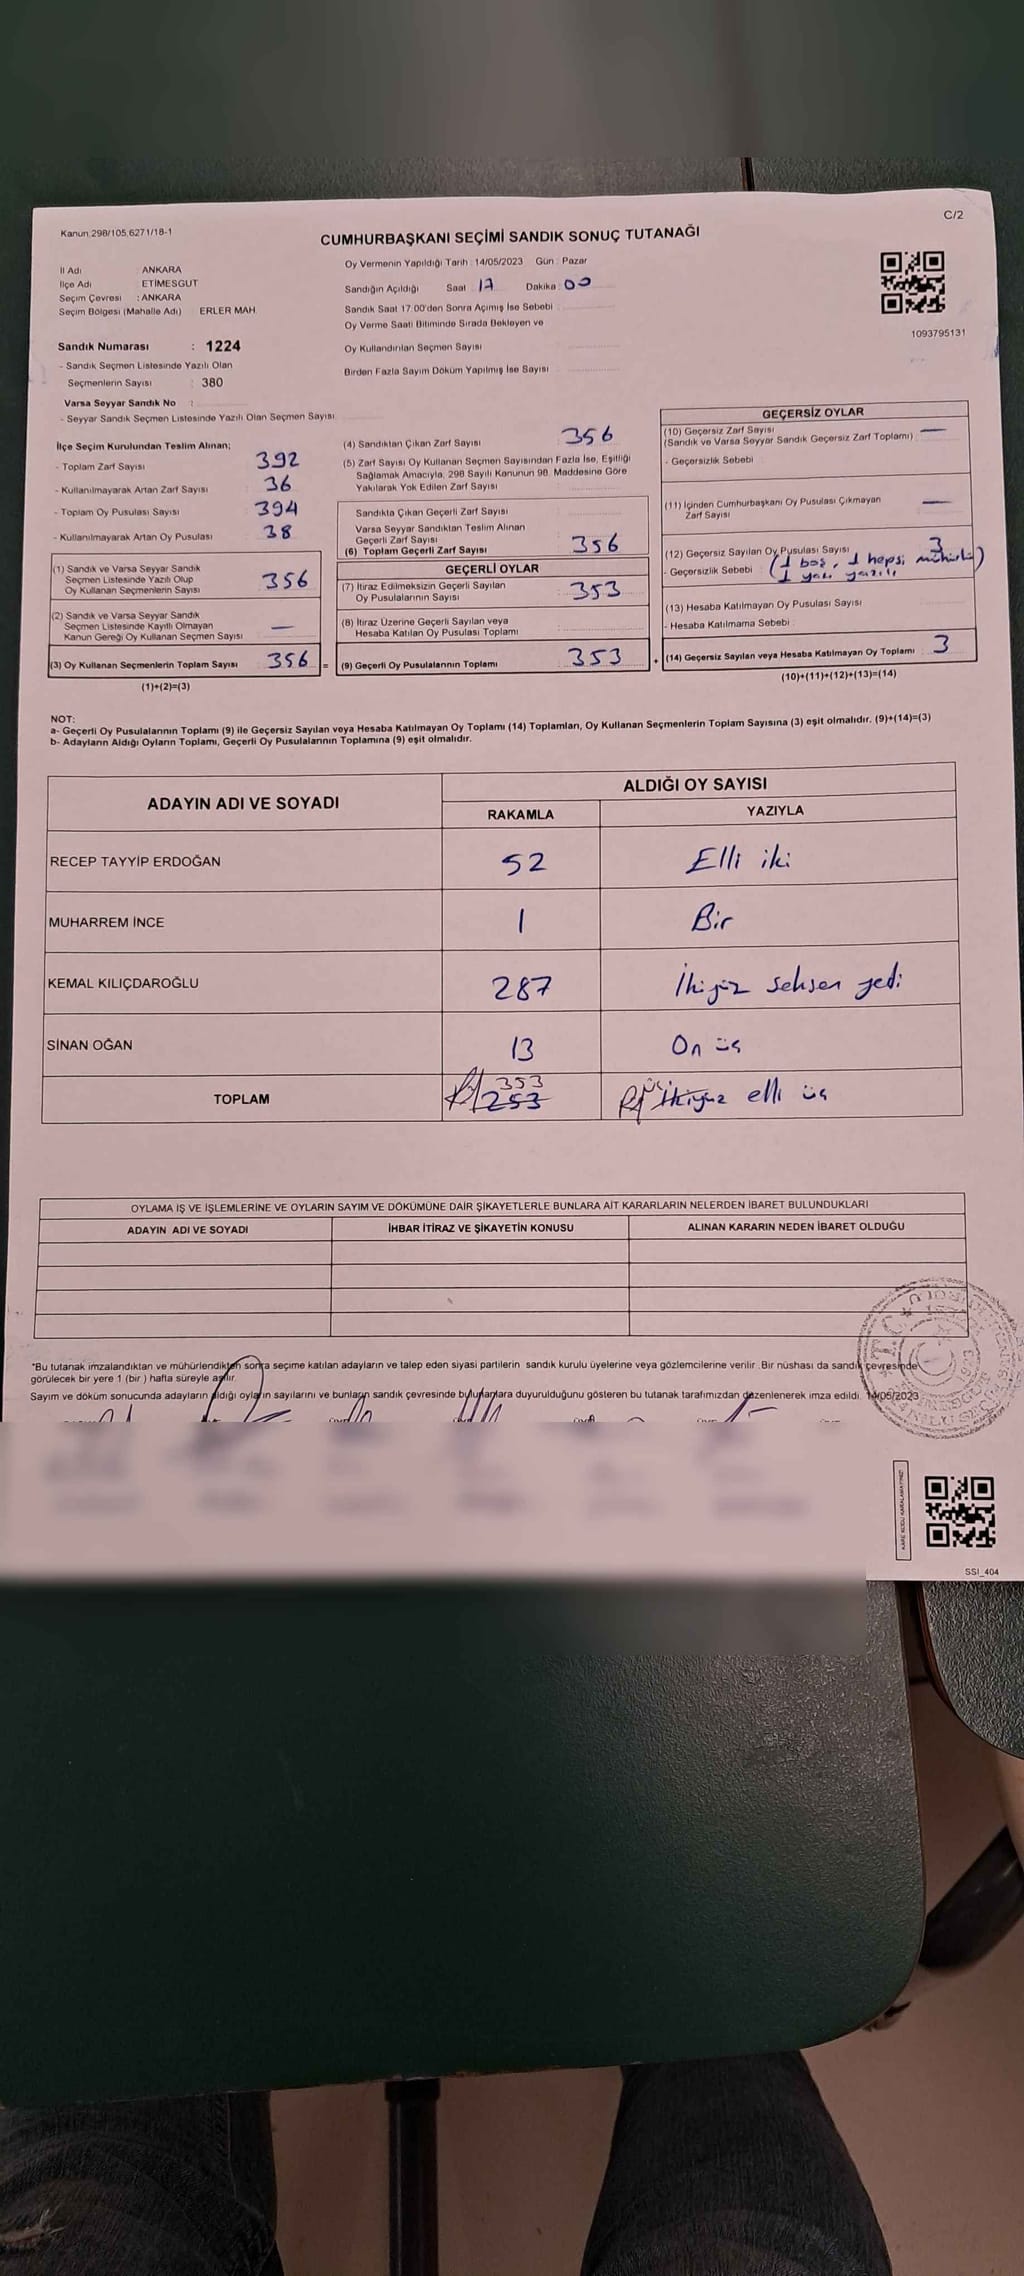 C/2
Kanun.298/105,6271/18-1
CUMHURBAŞKANI SEÇİMİ SANDIK SONUÇ TUTANAĞI
İl Adı : ANKARA
İlçe Adı : ETİMESGUT
Seçim Çevresi : ANKARA
Seçim Bölgesi (Mahalle Adı) ERLER MAH
Oy Vermenin Yapıldığı Tarih : 14/05/2023 Gün : Pazar
Sandığın Açıldığı Saat 17 Dakika : 00
Sandık Saat 17:00'den Sonra Açımış İse Sebebi
Oy Verme Saati Bitiminde Sırada Bekleyen ve
Oy Kullandırılan Seçmen Sayısı
Birden Fazla Sayım Döküm Yapılmış İse Sayısı
1093795131
Sandık Numarası : 1224
- Sandık Seçmen Listesinde Yazılı Olan
Seçmenlerin Sayısı : 380
Varsa Seyyar Sandık No :
- Seyyar Sandık Seçmen Listesinde Yazılı Olan Seçmen Sayısı
İlçe Seçim Kurulundan Teslim Alınan;
- Toplam Zarf Sayısı 392
- Kullanılmayarak Artan Zarf Sayısı 36
- Toplam Oy Pusulası Sayısı 394
- Kullanılmayarak Artan Oy Pusulası 38
(1) Sandık ve Varsa Seyyar Sandık
Seçmen Listesinde Yazılı Olup
Oy Kullanan Seçmenlerin Sayısı 356
(2) Sandık ve Varsa Seyyar Sandık
Seçmen Listesinde Kayıtlı Olmayan
Kanun Gereği Oy Kullanan Seçmen Sayısı —
(3) Oy Kullanan Seçmenlerin Toplam Sayısı 356 =
(1)+(2)=(3)
(4) Sandıktan Çıkan Zarf Sayısı 356
(5) Zarf Sayısı Oy Kullanan Seçmen Sayısından Fazla İse, Eşitliği
Sağlamak Amacıyla, 298 Sayılı Kanunun 98. Maddesine Göre
Yakılarak Yok Edilen Zarf Sayısı
Sandıkta Çıkan Geçerli Zarf Sayısı
Varsa Seyyar Sandıktan Teslim Alınan
Geçerli Zarf Sayısı
(6) Toplam Geçerli Zarf Sayısı 356
GEÇERLİ OYLAR
(7) İtiraz Edilmeksizin Geçerli Sayılan
Oy Pusulalarının Sayısı 353
(8) İtiraz Üzerine Geçerli Sayılan veya
Hesaba Katılan Oy Pusulası Toplamı
(9) Geçerli Oy Pusulalarının Toplamı 353 +
GEÇERSİZ OYLAR
(10) Geçersiz Zarf Sayısı —
(Sandık ve Varsa Seyyar Sandık Geçersiz Zarf Toplamı)
- Geçersizlik Sebebi
(11) İçinden Cumhurbaşkanı Oy Pusulası Çıkmayan —
Zarf Sayısı
(12) Geçersiz Sayılan Oy Pusulası Sayısı 3
- Geçersizlik Sebebi : (1 boş, 1 hepsi mühürlü)
1 yazı yazılı
(13) Hesaba Katılmayan Oy Pusulası Sayısı
- Hesaba Katılmama Sebebi :
(14) Geçersiz Sayılan veya Hesaba Katılmayan Oy Toplamı 3
(10)+(11)+(12)+(13)=(14)
NOT:
a- Geçerli Oy Pusulalarının Toplamı (9) ile Geçersiz Sayılan veya Hesaba Katılmayan Oy Toplamı (14) Toplamları, Oy Kullanan Seçmenlerin Toplam Sayısına (3) eşit olmalıdır. (9)+(14)=(3)
b- Adayların Aldığı Oyların Toplamı, Geçerli Oy Pusulalarının Toplamına (9) eşit olmalıdır.
ADAYIN ADI VE SOYADI
ALDIĞI OY SAYISI
RAKAMLA YAZIYLA
RECEP TAYYİP ERDOĞAN 52 Elli iki
MUHARREM İNCE 1 Bir
KEMAL KILIÇDAROĞLU 287 İkiyüz seksen yedi
SİNAN OĞAN 13 On üç
353 üç
TOPLAM 253 İkiyüz elli üç
OYLAMA İŞ VE İŞLEMLERİNE VE OYLARIN SAYIM VE DÖKÜMÜNE DAİR ŞİKAYETLERLE BUNLARA AİT KARARLARIN NELERDEN İBARET BULUNDUKLARI
ADAYIN ADI VE SOYADI İHBAR İTİRAZ VE ŞİKAYETİN KONUSU ALINAN KARARIN NEDEN İBARET OLDUĞU
*Bu tutanak imzalandıktan ve mühürlendikten sonra seçime katılan adayların ve talep eden siyasi partilerin sandık kurulu üyelerine veya gözlemcilerine verilir. Bir nüshası da sandık çevresinde
görülecek bir yere 1 (bir ) hafta süreyle asılır.
Sayım ve döküm sonucunda adayların aldığı oyların sayılarını ve bunların sandık çevresinde bulunanlara duyurulduğunu gösteren bu tutanak tarafımızdan düzenlenerek imza edildi. 14/05/2023
T.C.
KARE KODU KARALAMAYINIZ!
SSI_404